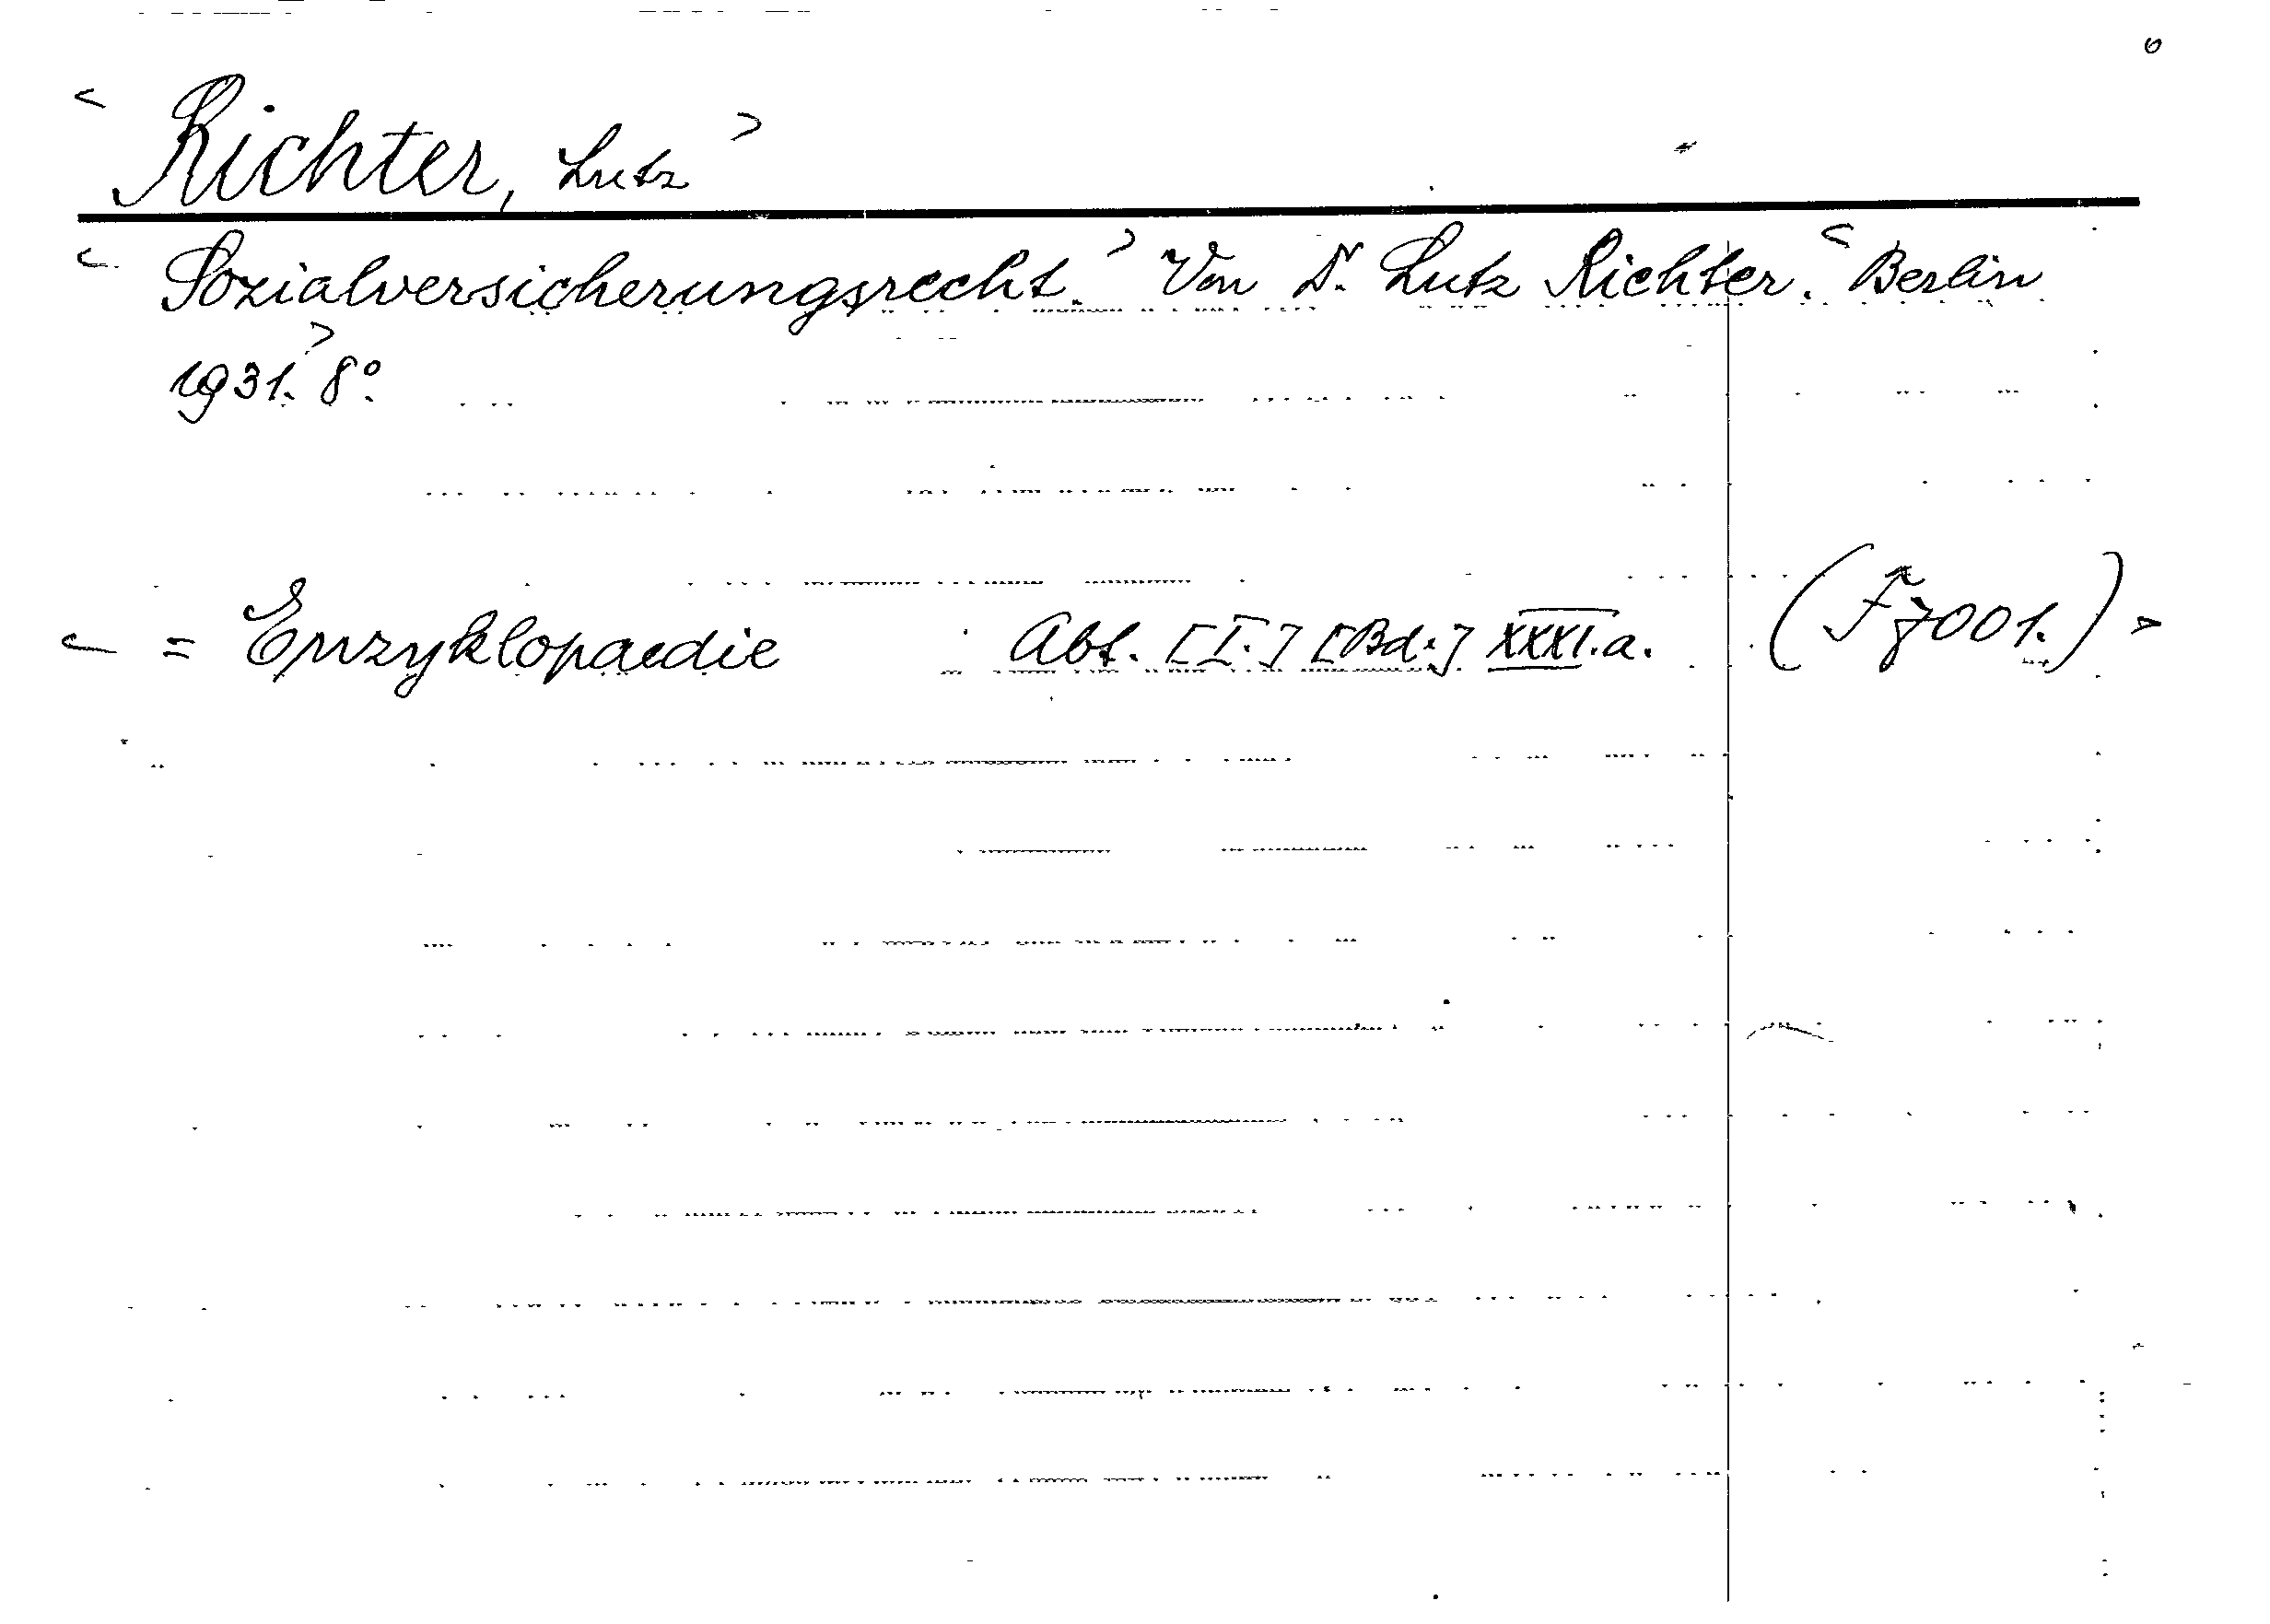 < Richter, Lutz >
< Sozialversicherungsrecht. > Von Dr. Lutz Richter. < Berlin
1931. > 8°.
< = Enzyklopaedie Abt. [I.] [Bd.] XXXI.a. (F 7001.) >